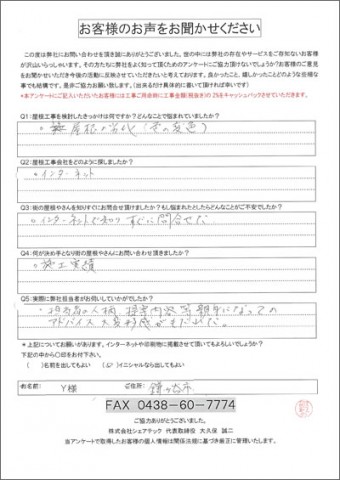 お客様のお声をお聞かせください
この度は弊社にお問い合わせを頂き誠にありがとうございました。世の中には弊社の存在やサービスをご存知ないお客様
が沢山いらっしゃいます。その方たちに弊社をよく知って頂くためのアンケートにご協力頂けないでしょうか?お客様のご意見
をお聞かせいただき今後の活動に反映させていただきたいと考えております。良かったこと、嬉しかったことどのような些細な
事でも結構です。是非ご協力お願い致します。(出来るだけ具体的に書いて頂ければ幸いです)
*本アンケートにご記入いただいたお客様には工事ご用命時に工事金額(税抜き)の2%をキャッシュバックさせていただきます。
Q1:屋根工事を検討したきっかけは何ですか?どんなことで悩まれていましたか?
Q2:屋根工事会社をどのように探しましたか?
。インターネット
Q3:街の屋根やさんを知りすぐに問合せ頂けましたか?もし悩まれたとしたらどんなことがご不安でしたか?
。インターネットで知りすぐに問合せた
Q4:何が決め手となり街の屋根やさんにお問い合わせ頂きましたか?
。施工実績
Q5:実際に弊社担当者がお伺いしていかがでしたか?
・担当者の人柄、提案内容等親身になっての
アドバイス大変好感がもて
*上記についてお願いがあります。インターネットや印刷物に掲載させて頂いてもよろしいでしょうか?
下記の中から〇印をお付下さい。
( )名前を出してもよい ( )イニシャルなら出してもよい
お名前: Y様 ご住所: 鎌ヶ谷市
FAX 0438-60-7774
ご協力ありがとうございました。
株式会社シェアテック 代表取締役 大久保 誠二
当アンケートで取得したお客様の個人情報は関係法規に基づき厳正に管理いたします。